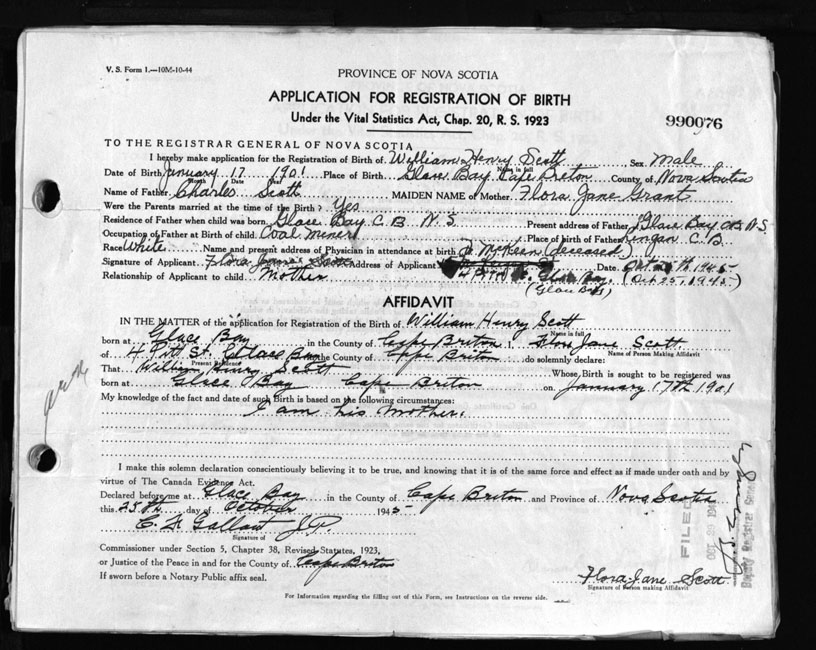 V. S. Form 1.—10M-10-44
PROVINCE OF NOVA SCOTIA
APPLICATION FOR REGISTRATION OF BIRTH
Under the Vital Statistics Act, Chap. 20, R. S. 1923
990076
TO THE REGISTRAR GENERAL OF NOVA SCOTIA
I hereby make application for the Registration of Birth of William Henry Scott Sex Male
Name in full
Date of Birth January 17 1901 Place of Birth Glace Bay Cape Breton County of Nova Scotia
Month Date Year
Name of Father Charles Scott MAIDEN NAME of Mother Flora Jane Grant
Were the Parents married at the time of the Birth? Yes
Residence of Father when child was born Glace Bay C.B. N.S. Present address of Father Glace Bay C.B. N.S.
Occupation of Father at Birth of child Coal Miner Place of Birth of Father Lingan C.B.
Race White Name and present address of Physician in attendance at birth McKean (deceased)
Signature of Applicant Flora Jane Scott Address of Applicant Date
Relationship of Applicant to child Mother (Glace Bay) (Oct 25, 1945)
AFFIDAVIT
IN THE MATTER of the application for Registration of the Birth of William Henry Scott
Name in full
born at Glace Bay in the County of Cape Briton I, Flora Jane Scott
Name of Person Making Affidavit
of 4 Pitt St. Glace Bay in the County of Cape Briton do solemnly declare:
Present Residence
That William Henry Scott Whose Birth is sought to be registered was
born at Glace Bay Cape Briton on January 17th 1901
My knowledge of the fact and date of such Birth is based on the following circumstances:
I am his mother.
I make this solemn declaration conscientiously believing it to be true, and knowing that it is of the same force and effect as if made under oath and by
virtue of The Canada Evidence Act.
Declared before me at Glace Bay in the County of Cape Briton and Province of Nova Scotia
this 25th day of October 1945
E. Gallant J.P.
Signature of
Commissioner under Section 5, Chapter 38, Revised Statutes, 1923,
or Justice of the Peace in and for the County of Cape Briton
If sworn before a Notary Public affix seal.
Flora Jane Scott
Signature of Person making Affidavit
For Information regarding the filling out of this Form, see Instructions on the reverse side.
FILED
OCT 29 194
Deputy Registrar General